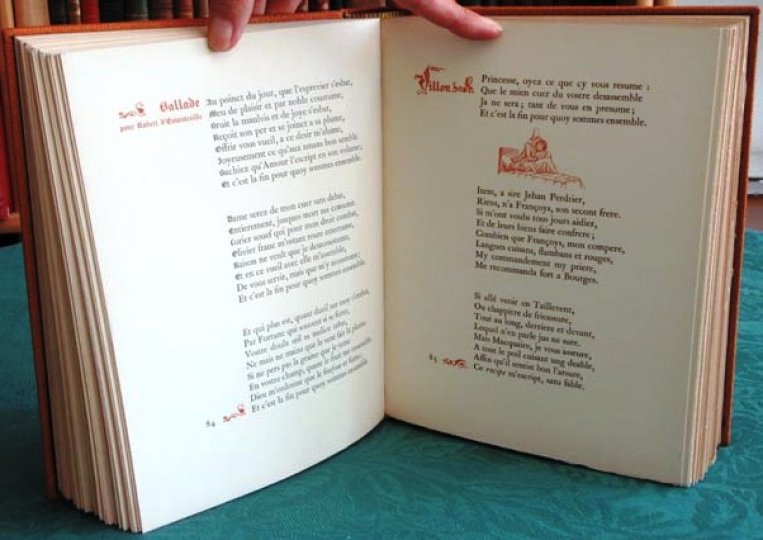 Ballade
pour Robert d'Estouteville
Au poinct du jour, que l'esprevier s'esbat,
Meu de plaisir et par noble coustume,
Bruit la maulvis et de joye s'esbat,
Reçoit son per et se joinct a sa plume,
Offrir vous vueil, a ce desir m'alume,
Joyeusement ce qu'aux amans bon semble.
Sachiez qu'Amour l'escript en son volume,
Et c'est la fin pour quoy sommes ensemble.
Dame serez de mon cuer sans debat,
Entierement, jusques mort me consume
Lorier souef qui pour mon droit combat,
Olivier franc m'ostant toute amertume,
Raison ne veult que je desacoustume,
Et en ce vueil avec elle m'assemble,
De vous servir, mais que m'y acoustume;
Et c'est la fin pour quoy sommes ensemble
Et qui plus est, quant dueil sur moy s'embat,
Par Fortune qui souvent si se fume,
Vostre doulx œil sa malice rabat,
Ne mais ne mains que le vent fait la plume.
Si ne pers pas la graine que je sume
En vostre champ, quant le fruit me ressemble
Dieu m'ordonne que le fouysse et fume;
Et c'est la fin pour quoy sommes ensemble
84
Villon
Princesse, oyez ce que cy vous resume :
Que le mien cuer du vostre desassemble
Ja ne sera; tant de vous en presume;
Et c'est la fin pour quoy sommes ensemble.
Item, a sire Jehan Perdrier,
Riens, n'a Françoys, son second frere.
Si m'ont voulu tous jours aidier,
Et de leurs biens faire confrere;
Combien que Françoys, mon compere,
Langues cuisans, flambans et rouges,
My commandement my priere,
Me recommanda fort a Bourges.
Si allé veoir en Taillevent,
Ou chappitre de fricassure,
Tout au long, derriere et devant,
Lequel n'en parle jus ne sure.
Mais Macquaire, je vous asseure,
A tout le poil cuisant ung deable,
Affin qu'il sentist bon l'arsure,
Ce recipe m'escript, sans fable.
85